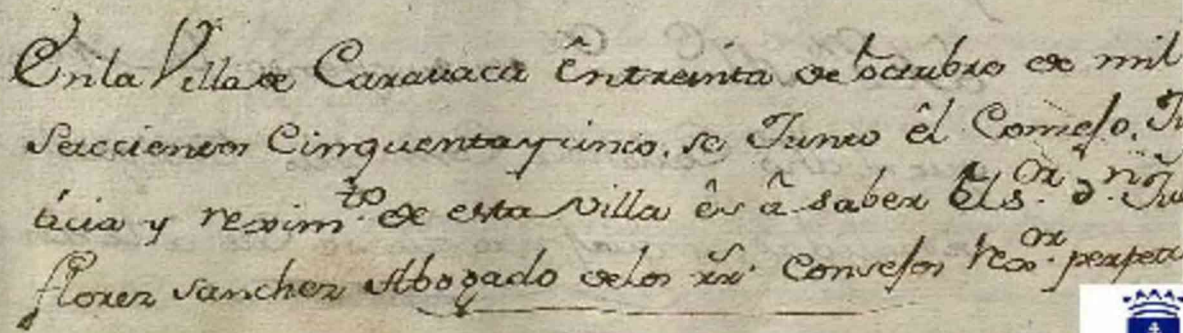 En la Villa de Caravaca êntreinta de octubre de mil
Setecientos Cinquenta y cinco, se Junto êl Consejo, Jus
ticia y rexim.to de esta Villa ês â saber El s.or d.n Ju
florez sanchez Abogado delos rr.s Consejos Rex.or perpet